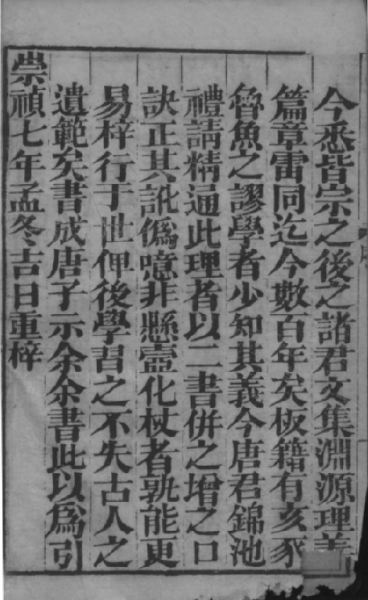 今悉皆宗之後之諸君文集淵源理義
篇章雷同迄今數百年矣板籍有亥豕
魯魚之謬學者少知其義今唐君錦池
禮請精通此理者以二書併之增之口
訣正其訛僞噫非懸壺化杖者孰能更
易梓行于世俾後學習之不失古人之
遺範矣書成唐子示余余書此以爲引
崇禎七年孟冬吉日重梓